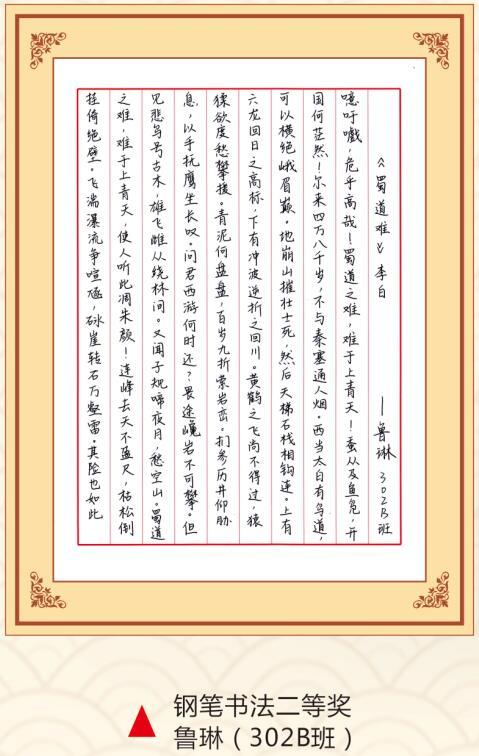 《蜀道难》 李白 ——鲁琳 302B班
噫吁戲，危乎高哉！蜀道之难，难于上青天！蚕丛及鱼凫，开
国何茫然！尔来四万八千岁，不与秦塞通人烟。西当太白有鸟道，
可以横绝峨眉巅。地崩山摧壮士死，然后天梯石栈相钩连。上有
六龙回日之高标，下有冲波逆折之回川。黄鹤之飞尚不得过，猿
猱欲度愁攀援。青泥何盘盘，百步九折萦岩峦。扪参历井仰胁
息，以手抚膺坐长叹。问君西游何时还？畏途巉岩不可攀。但
见悲鸟号古木，雄飞雌从绕林间。又闻子规啼夜月，愁空山。蜀道
之难，难于上青天，使人听此凋朱颜！连峰去天不盈尺，枯松倒
挂倚绝壁。飞湍瀑流争喧豗，砯崖转石万壑雷。其险也如此
钢笔书法二等奖
鲁琳（302B班）